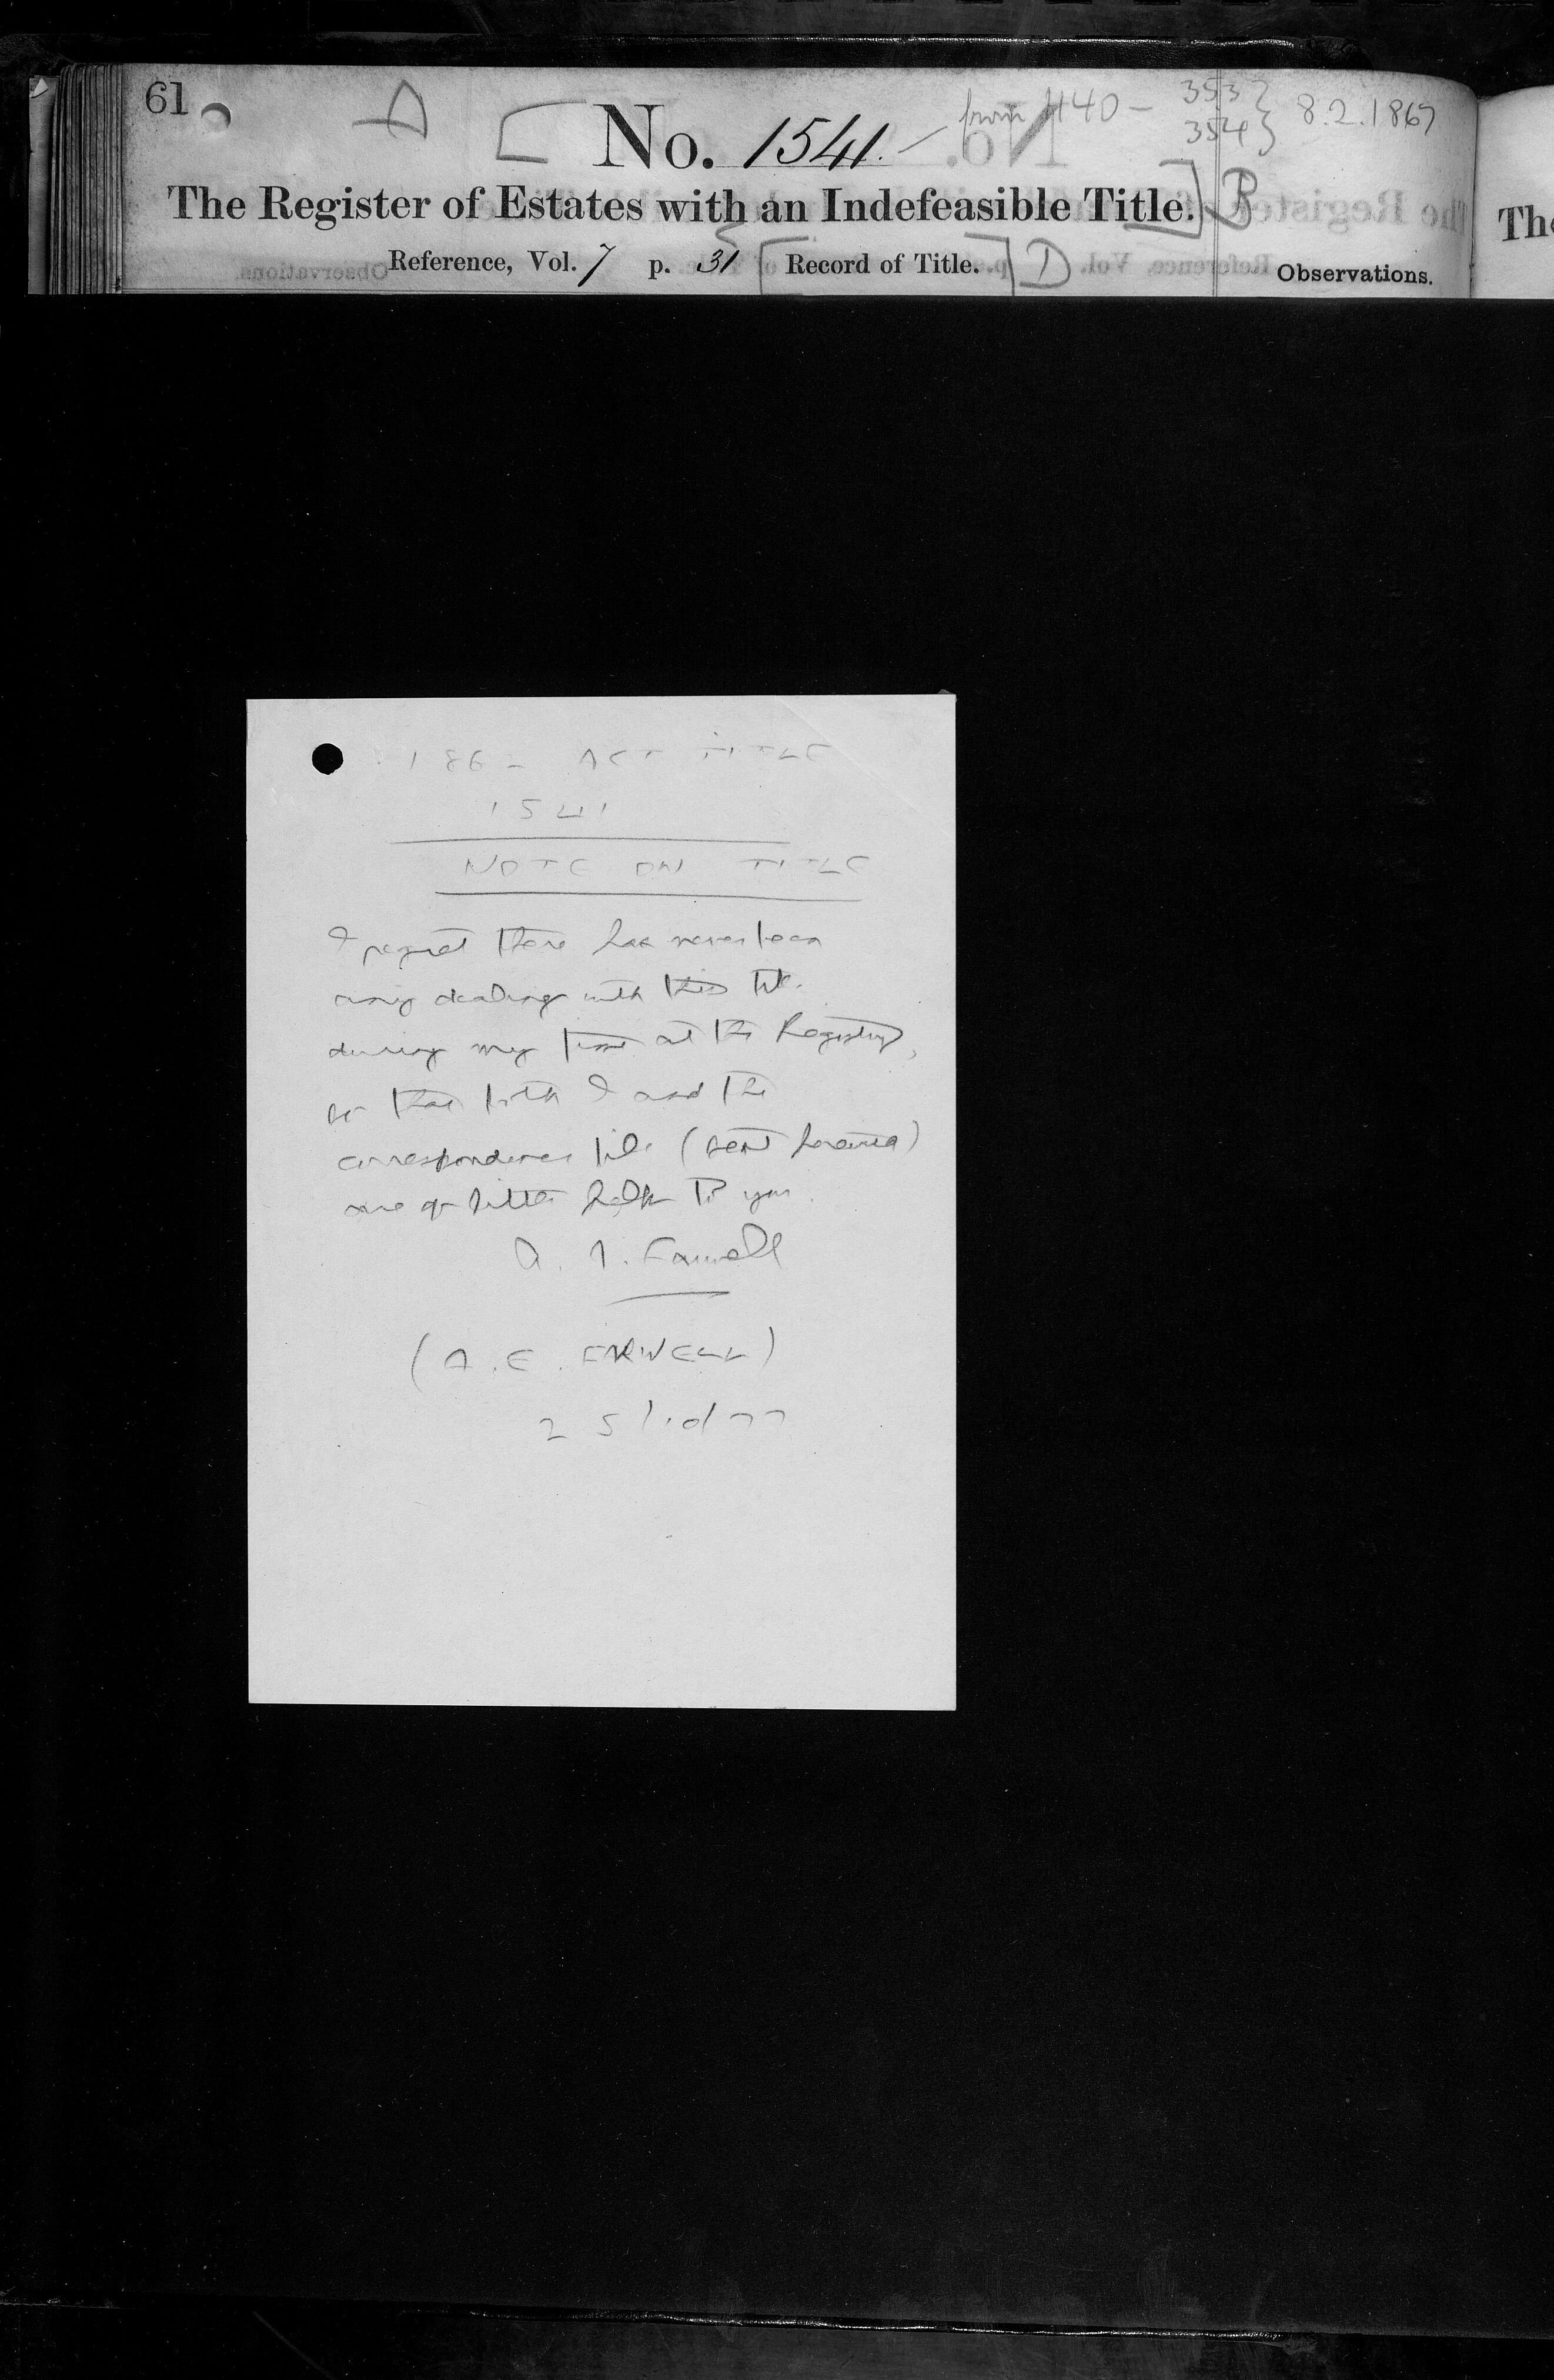 61 A [ No. 1541. from 1140 - 353 } 8.2.1867
354 }
The Register of Estates with an Indefeasible Title.] B
Reference, Vol. 7 p. 31 [Record of Title.] D Observations.
The
186- ACT TITLE
1541
NOTE ON TITLE
I regret there has never been
any dealing with this title
during my time at the Registry,
so that both I and the
correspondence file (sent herewith)
are of little help to you.
A. E. Farwell
(A. E. FARWELL)